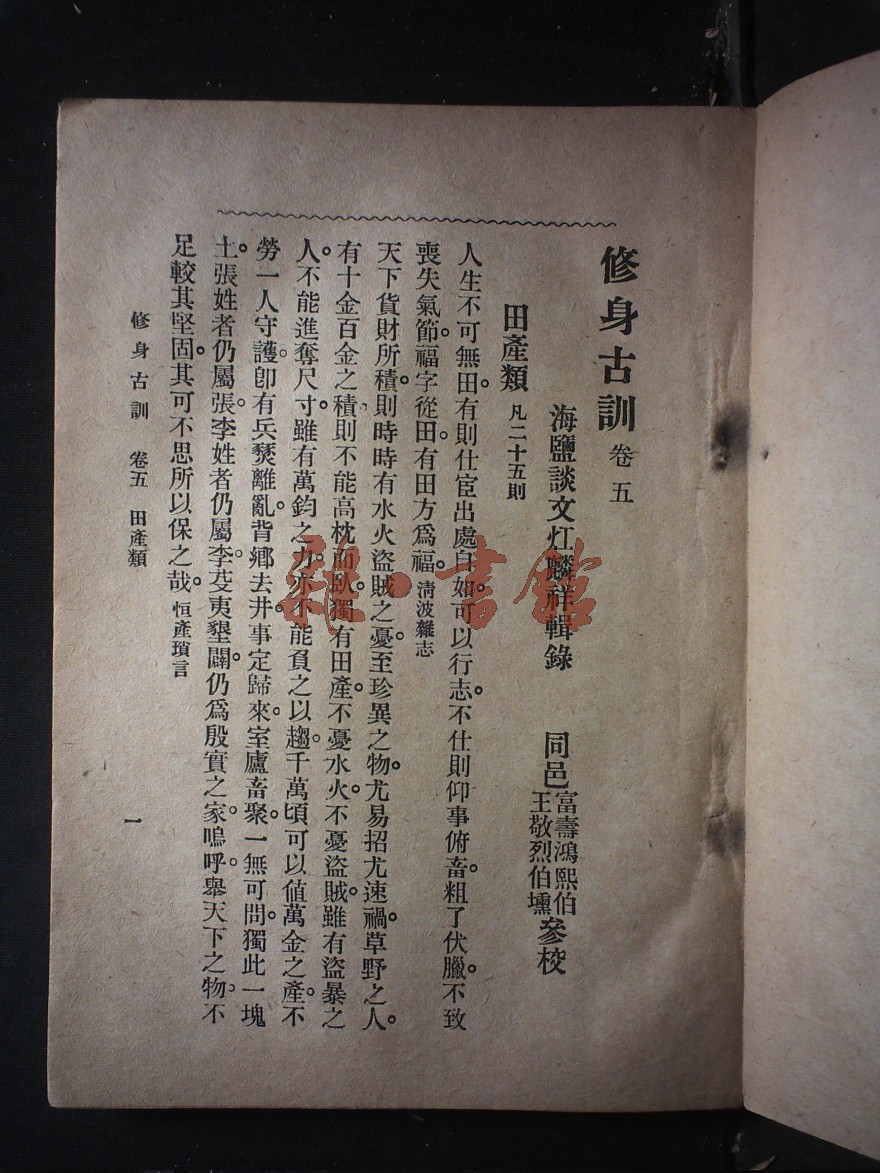 修身古訓 卷五
海鹽談文灴麟祥輯錄 同邑 富壽鴻熙伯 王敬烈伯壎 參校
田產類 凡二十五則
人生不可無田。有則仕宦出處自如。可以行志。不仕則仰事俯畜。粗了伏臘。不致
喪失氣節。福字從田。有田方爲福。清波雜志
天下貨財所積。則時時有水火盜賊之憂。至珍異之物。尤易招尤速禍。草野之人。
有十金百金之積。則不能高枕而臥。獨有田產。不憂水火。不憂盜賊。雖有盜暴之
人。不能進奪尺寸。雖有萬鈞之力。亦不能負之以趨。千萬頃可以値萬金之產。不
勞一人守護。卽有兵燹離亂。背鄉去井。事定歸來。室廬畜聚。一無可問。獨此一塊
土。張姓者仍屬張。李姓者仍屬李。芟夷墾闢。仍爲殷實之家。嗚呼。舉天下之物。不
足較其堅固。其可不思所以保之哉。恒產瑣言
修身古訓 卷五 田產類
一
雜·書館